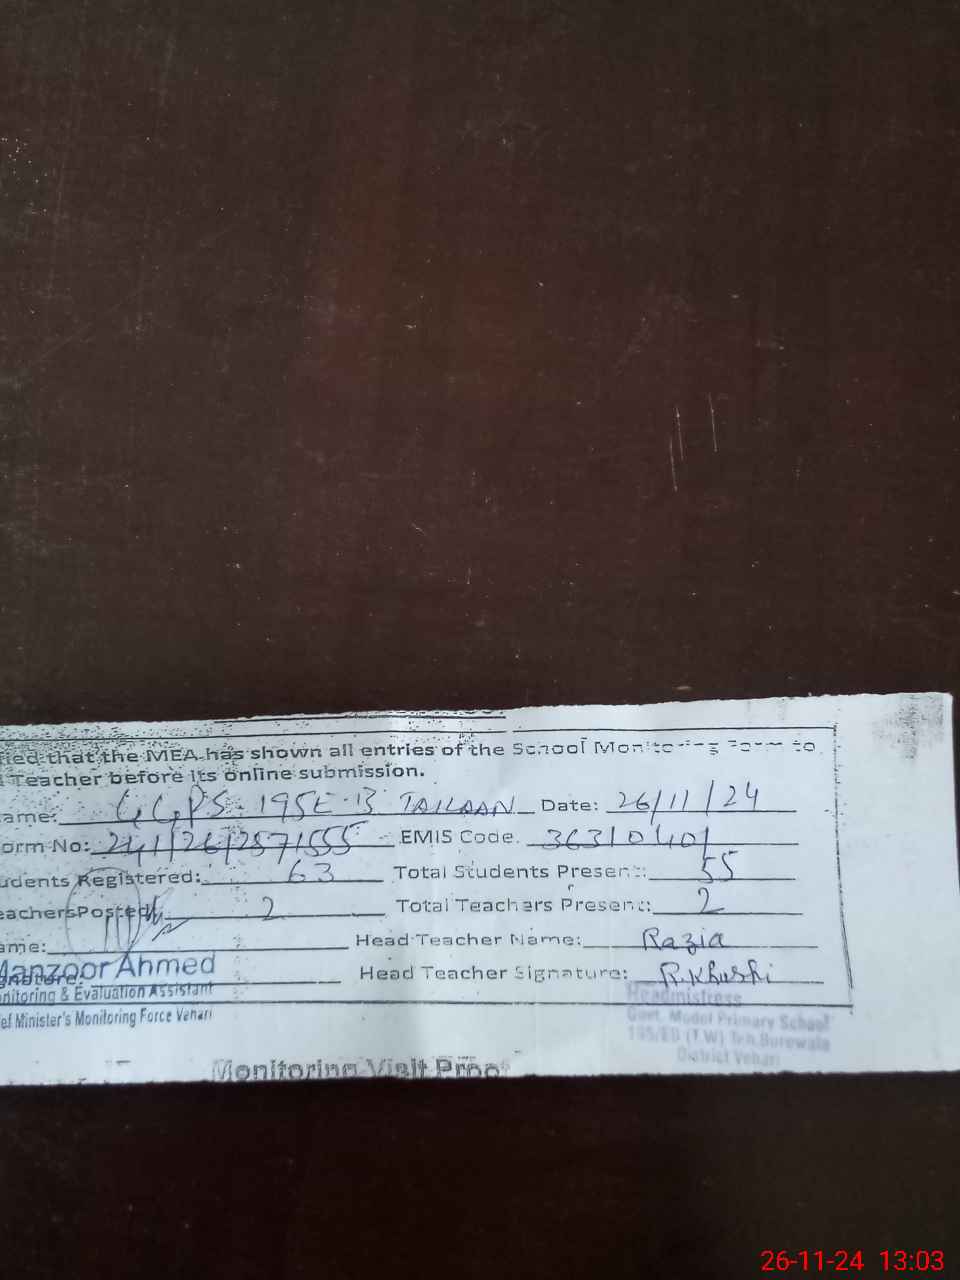 ied that the MEA has shown all entries of the School Monitoring Form to
Teacher before its online submission.
ame: GGPS 195E-B TAILAAN Date: 26/11/24
orm No: 241/26/2571555 EMIS Code. 36310401
udents Registered: 63 Total Students Present: 55
eachers Posted: 2 Total Teachers Present: 2
ame: Head Teacher Name: Razia
Manzoor Ahmed
gnature: Head Teacher Signature: R.Khushi
onitoring & Evaluation Assistant
ef Minister's Monitoring Force Vehari
Headmistress
Govt. Model Primary School
195/EB (T.W) Teh.Burewala
District Vehari
Monitoring Visit Proof
26-11-24 13:03